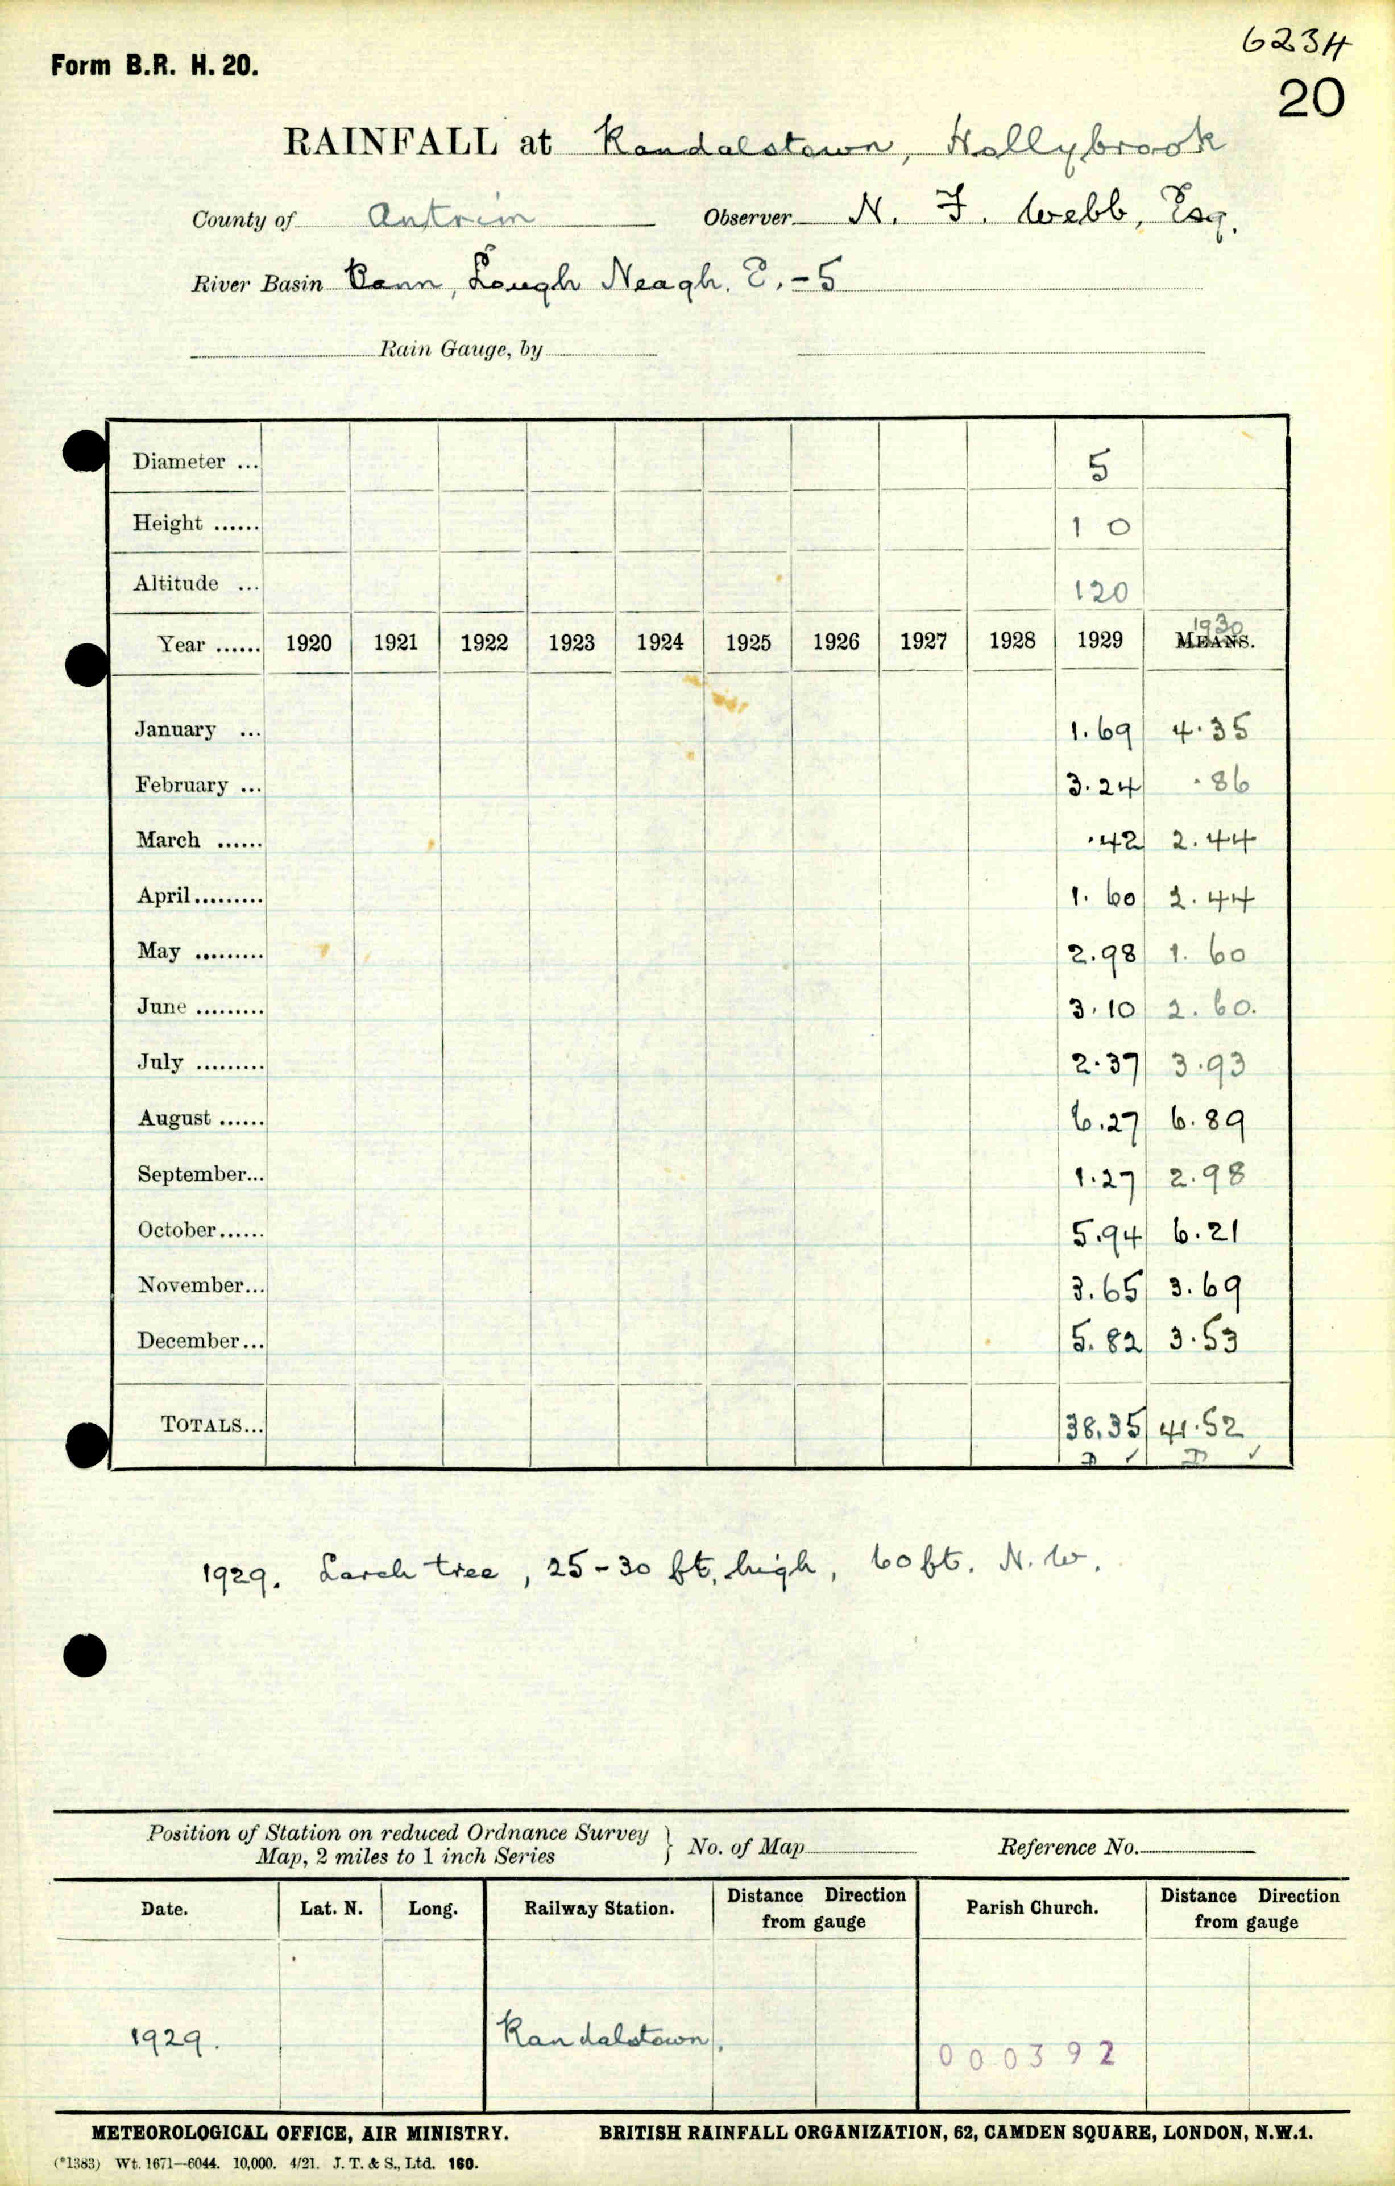 6234
Form B.R. H. 20.
20
RAINFALL at Randalstown, Hollybrook
County of Antrim Observer N. F. Webb, Esq.
River Basin Bann, Lough Neagh. E. - 5
Rain Gauge, by
Diameter ... 5
Height ...... 1 0
Altitude ... 120
1930
Year ...... 1920 1921 1922 1923 1924 1925 1926 1927 1928 1929 MEANS.
January ... 1.69 4.35
February ... 3.24 .86
March ...... .42 2.44
April......... 1.60 2.44
May ......... 2.98 1.60
June ......... 3.10 2.60.
July ......... 2.37 3.93
August ...... 6.27 6.89
September... 1.27 2.98
October...... 5.94 6.21
November... 3.65 3.69
December... 5.82 3.53
TOTALS... 38.35 41.52
✓ ✓
1929. Larch tree, 25-30 ft. high, 60 ft. N.W.
Position of Station on reduced Ordnance Survey
Map, 2 miles to 1 inch Series } No. of Map Reference No.
Date. Lat. N. Long. Railway Station. Distance Direction from gauge Parish Church. Distance Direction from gauge
1929. Randalstown.
000392
METEOROLOGICAL OFFICE, AIR MINISTRY. BRITISH RAINFALL ORGANIZATION, 62, CAMDEN SQUARE, LONDON, N.W.1.
(*1383) Wt. 1671—6044. 10,000. 4/21. J. T. & S., Ltd. 160.